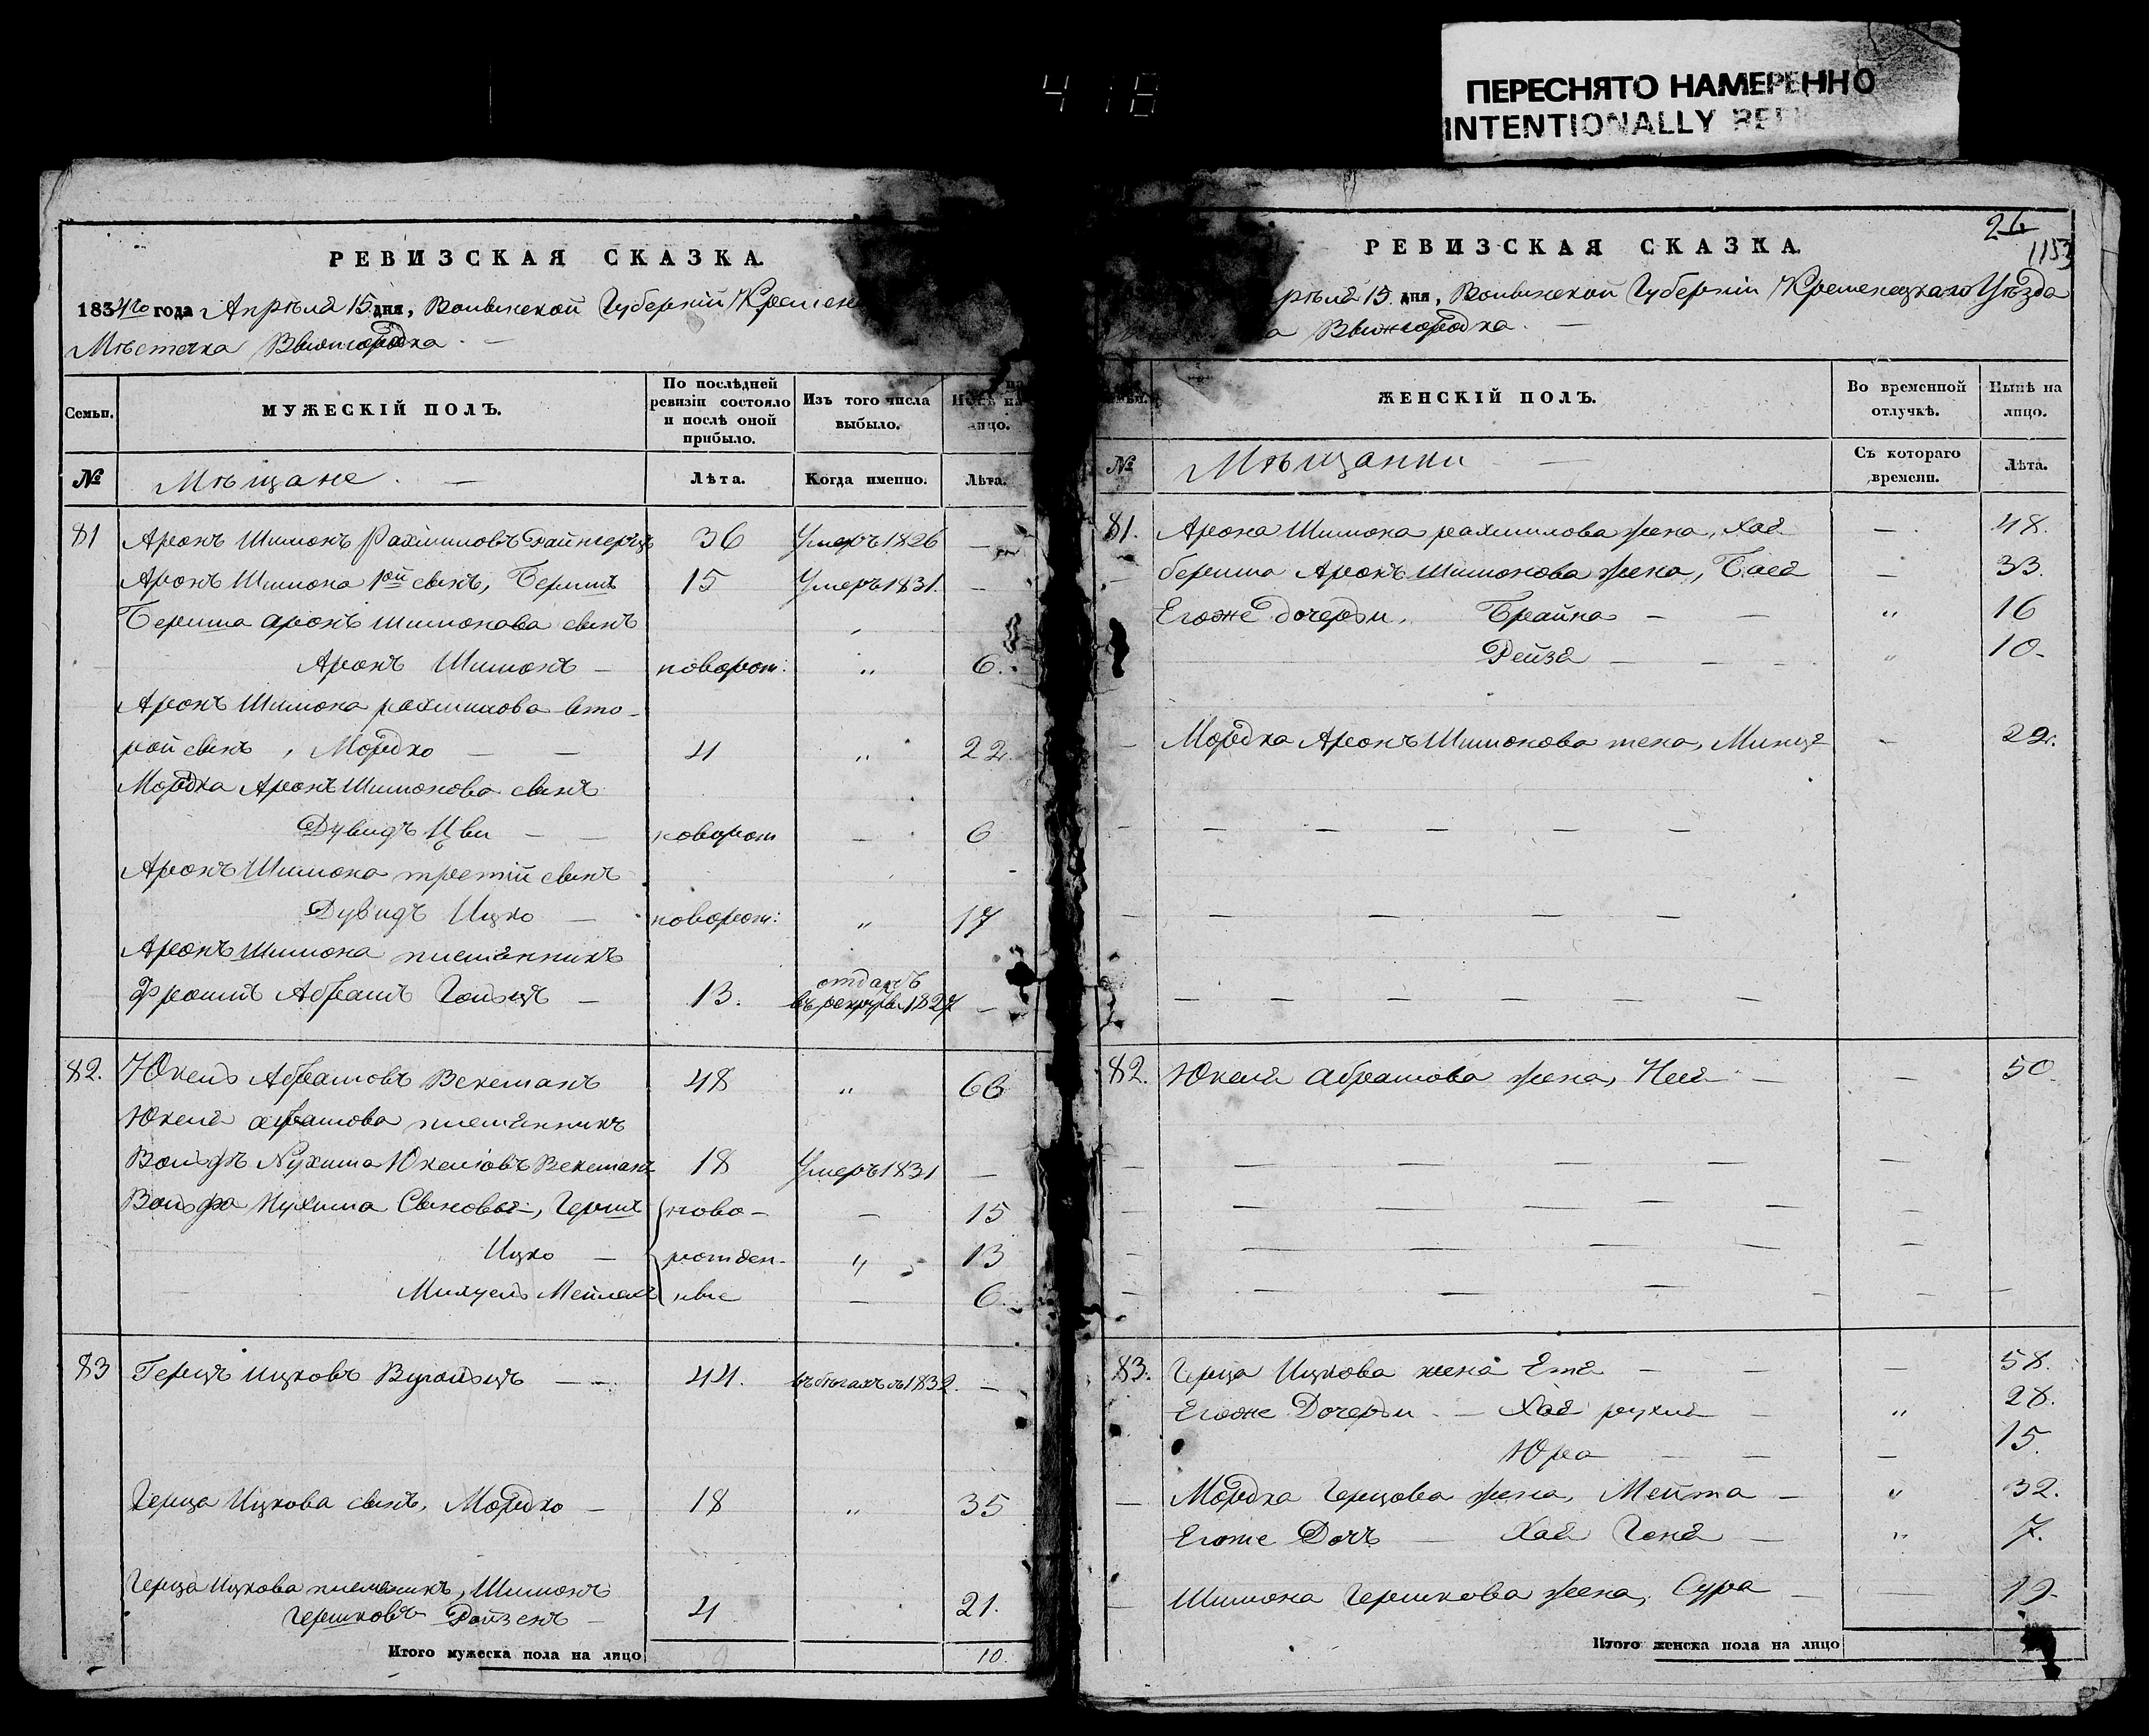 418
ПЕРЕСНЯТО НАМЕРЕННО
INTENTIONALLY
РЕВИЗСКАЯ СКАЗКА.
1834го года Апрѣля 15 дня, Волынской Губерніи
Мѣстечка Вышгородка
Семьи.
МУЖЕСКІЙ ПОЛЪ.
По послѣдней ревизіи состояло и послѣ оной прибыло.
Изъ того числа выбыло.
лицо.
№
Мѣщане.
Лѣта.
Когда именно.
Лѣта.
81 Аронъ Шимонъ Рахмиловъ 36 Умеръ 1826 —
Аронъ Шимона 1ой сынъ, Бериш 15 Умеръ 1831. —
Бериша аронъ шимонова сынъ
Аронъ Шимонъ — новорож: " 6.
Аронъ Шимона рахмилова вто-
рой сынъ, Мордко — — 4 " 22.
Мордка Аронъ Шимонова сынъ
Дувидъ Цви — — новорож — 6
Аронъ Шимона третій сынъ
Дувидъ Ицко — новорож: " 17
Аронъ Шимона племянникъ
Фроимъ Абрамъ — 13. отданъ
въ рекруты 1827 —
82. Юкель Абрамовъ Векеман 48 " 66
Юкеля абрамова племянникъ
Вольфъ Нухим Юкелювъ Векеман 18 Умеръ 1831 —
Вольфа Нухима Сыновья, Герш ново- — 15
Ицко — рожден- " 13
ные — 6.
83 Герцъ Ицковъ — — 44. въ бѣгахъ съ 1832. —
Герца Ицкова сынъ, Мордко — 18 " 35
Герца Ицкова племяникъ, Шимонъ
Гершковъ Ройзен — 4 21.
Итого мужеска пола на лицо 9 10.
26
1153
РЕВИЗСКАЯ СКАЗКА.
15 дня, Волынской Губерніи Кременецкаго Уѣзда
Вышгородка.
ЖЕНСКІЙ ПОЛЪ.
Во временной отлучкѣ.
Нынѣ на лицо.
№
Мѣщанки —
Съ котораго времени.
Лѣта.
81. Арона Шимона рахмилова жена, Хая — 48.
— бериша Аронъ Шимонова жена, Бася — 33.
Егоже дочери, Брайна — — " 16
Рейзя — — " 10.
— Мордка Аронъ Шимонова жена, — 22.
82. Юкеля абрамова жена, Нея — — 50.
83. Герца Ицкова жена Етя — — — 58.
Егоже Дочери — Хая рухля — " 28.
Юра — — — 15.
— Мордка Герцова жена, Мейта — " 32.
Егоже Дочь — Хая Геня — " 7.
— Шимона Гершкова жена, Сура — — 19.
Итого женска пола на лицо